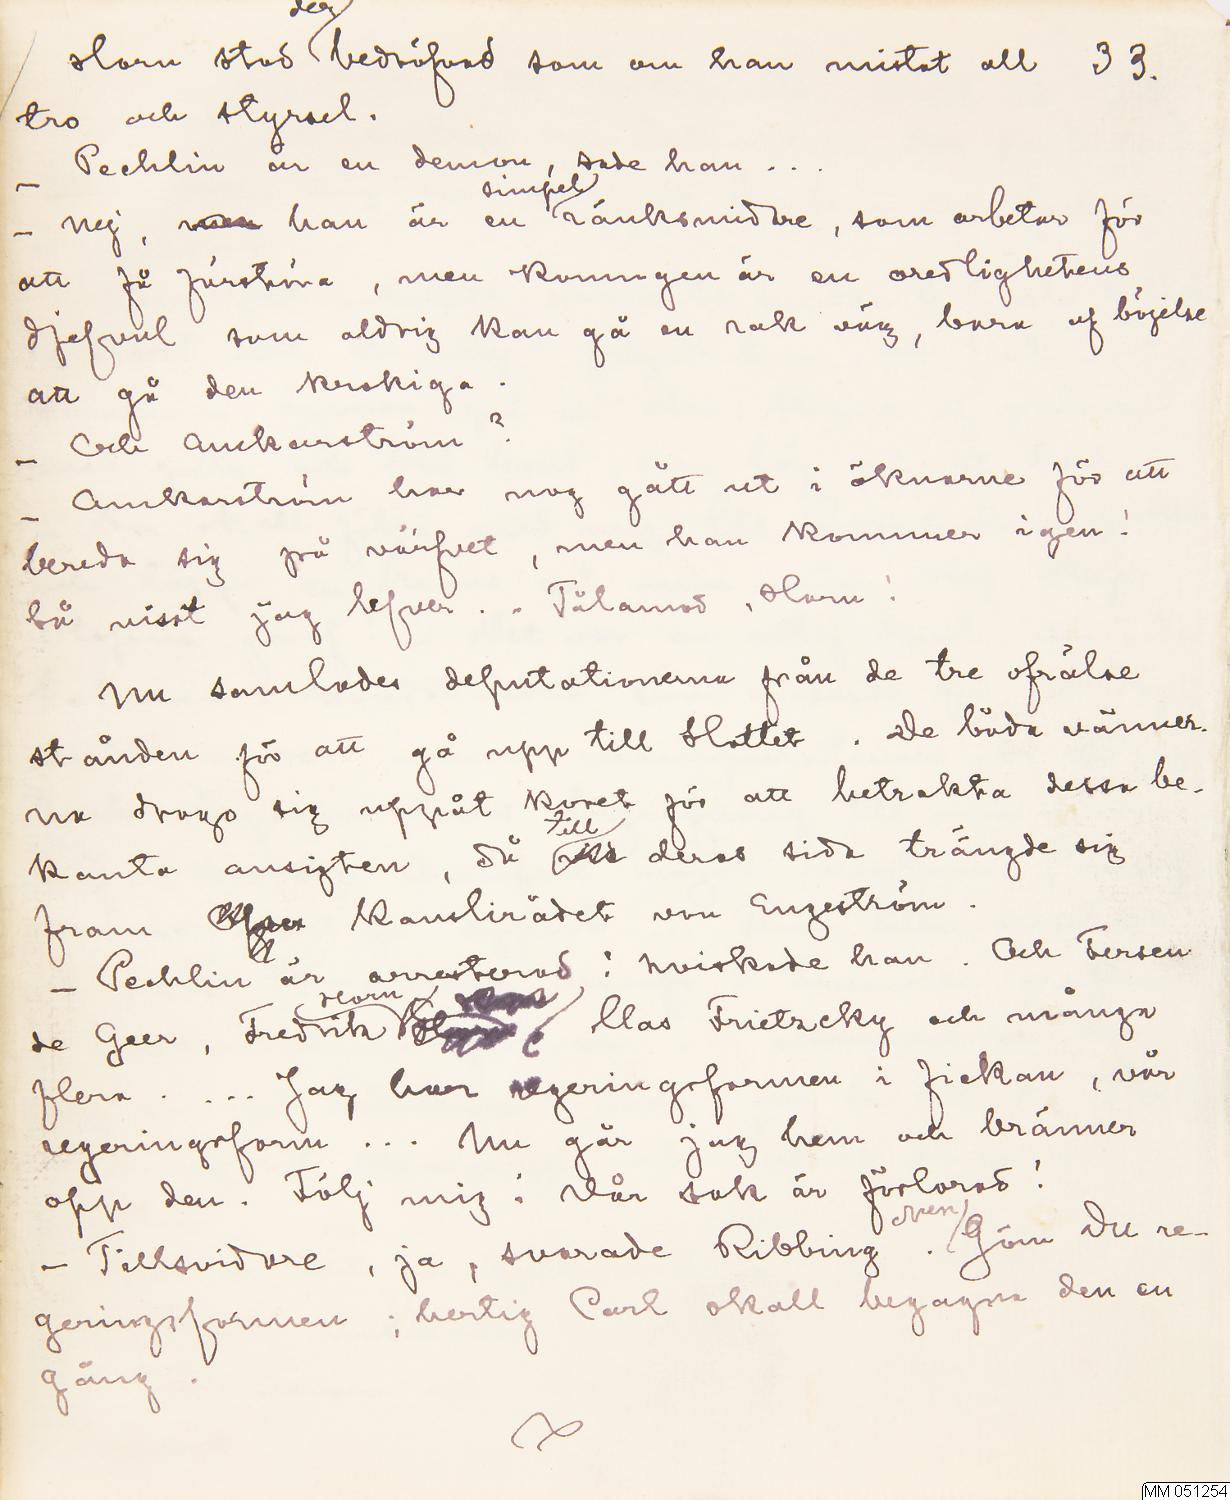 der
Horn stod bedröfvad som om han mistat all 33.
tro och styrsel.
– Pechlin är en demon, sade han...
simpel
– Nej, men han är en ränksmidare, som arbetar för
att få förstöra, men konungen är en oredlighetens
djefvul som aldrig kan gå en rak väg, bara af böjelse
att gå den krokiga.
– Och Anckarström?
– Anckarström har nog gått ut i öknarne för att
bereda sig på värfvet, men han kommer igen!
så visst jag lefver.. Tålamod, Horn!
Nu samlades deputationerna från de tre ofrälse
stånden för att gå upp till Slottet. De båda vänner-
na drogo sig uppåt koret för att betrakta dessa be-
till
kanta ansigten, då deras sida trängde sig
fram kanslirådet von Engeström.
– Pechlin är arresterad! hviskade han. Och Fersen
Horn
de Geer, Fredrik Clas Frietzcky och många
flera.... Jag har regeringsformen i fickan, vår
regeringsform... Nu går jag hem och bränner
opp den. Följ mig! Vår sak är förlorad!
men
– Tillsvidare, ja, svarade Ribbing. Göm Du re-
geringsformen; hertig Carl skall begagna den en
gång.
MM 051254